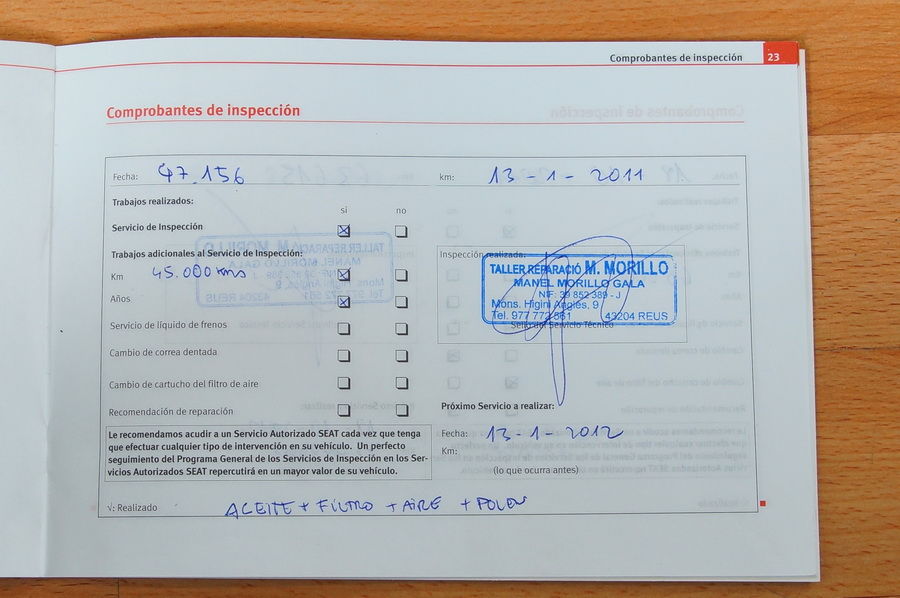 Comprobantes de inspección 23
Comprobantes de inspección
Fecha: 47.156 km: 13-1-2011
Trabajos realizados:
si no
Servicio de Inspección
Trabajos adicionales al Servicio de Inspección:
Km 45.000 kms
Años
Servicio de líquido de frenos
Cambio de correa dentada
Cambio de cartucho del filtro de aire
Recomendación de reparación
Inspección realizada:
TALLER REPARACIÓ M. MORILLO
MANEL MORILLO GALA
NIF: 39 852 389 - J
Mons. Higini Anglès, 9
Tel. 977 772 561 43204 REUS
Sello del Servicio Técnico
Próximo Servicio a realizar:
Fecha: 13-1-2012
Km:
(lo que ocurra antes)
Le recomendamos acudir a un Servicio Autorizado SEAT cada vez que tenga
que efectuar cualquier tipo de intervención en su vehículo. Un perfecto
seguimiento del Programa General de los Servicios de Inspección en los Ser-
vicios Autorizados SEAT repercutirá en un mayor valor de su vehículo.
√: Realizado ACEITE + FILTRO + AIRE + POLEN